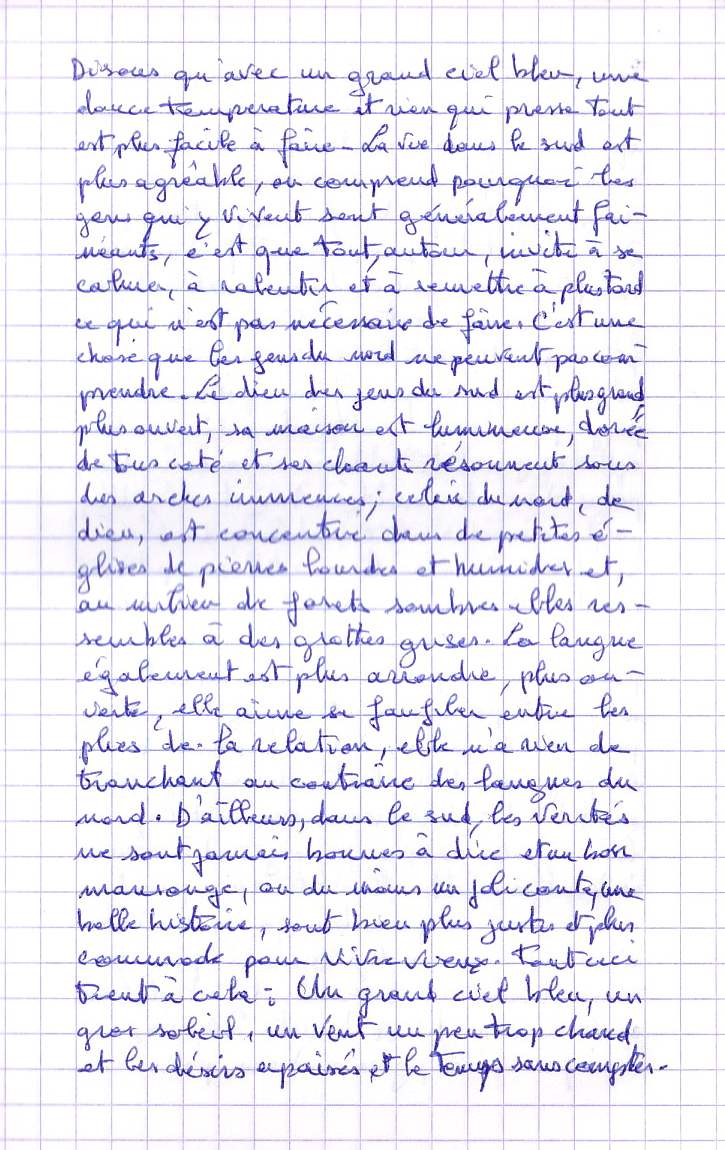 Disons qu'avec un grand ciel bleu, une
douce température et rien qui presse tout
est plus facile à faire - La vie dans le sud est
plus agréable, on comprend pourquoi les
gens qui y vivent sont généralement fai-
néants, c'est que tout, autour, invite à se
calmer, à ralentir et à remettre à plus tard
ce qui n'est pas nécessaire de faire. C'est une
chose que les gens du nord ne peuvent pas com
prendre. Le dieu des gens du sud est plus grand,
plus ouvert, sa maison est lumineuse, dorée
de tous coté et ses chants résonnent sous
des arches immences; celui du nord, de
dieu, est concentré dans de petites é-
glises de pierres lourdes et humides et,
au milieu de forets sombres elles res-
sembles à des grottes grises. La langue
également est plus arrondie, plus ou-
verte, elle aime se faufiler entre les
plies de la relation, elle n'a rien de
tranchant au contraire des langues du
nord. D'ailleurs, dans le sud, les vérités
ne sont jamais bonnes à dire et un bon
mansonge, ou du moins un joli conte, une
belle histoire, sont bien plus justes et plus
commode pour vivre vieux. Tout ceci
tient à cela : Un grand ciel bleu, un
gros soleil, un vent un peu trop chaud
et les désirs apaisés et le temps sans compter.